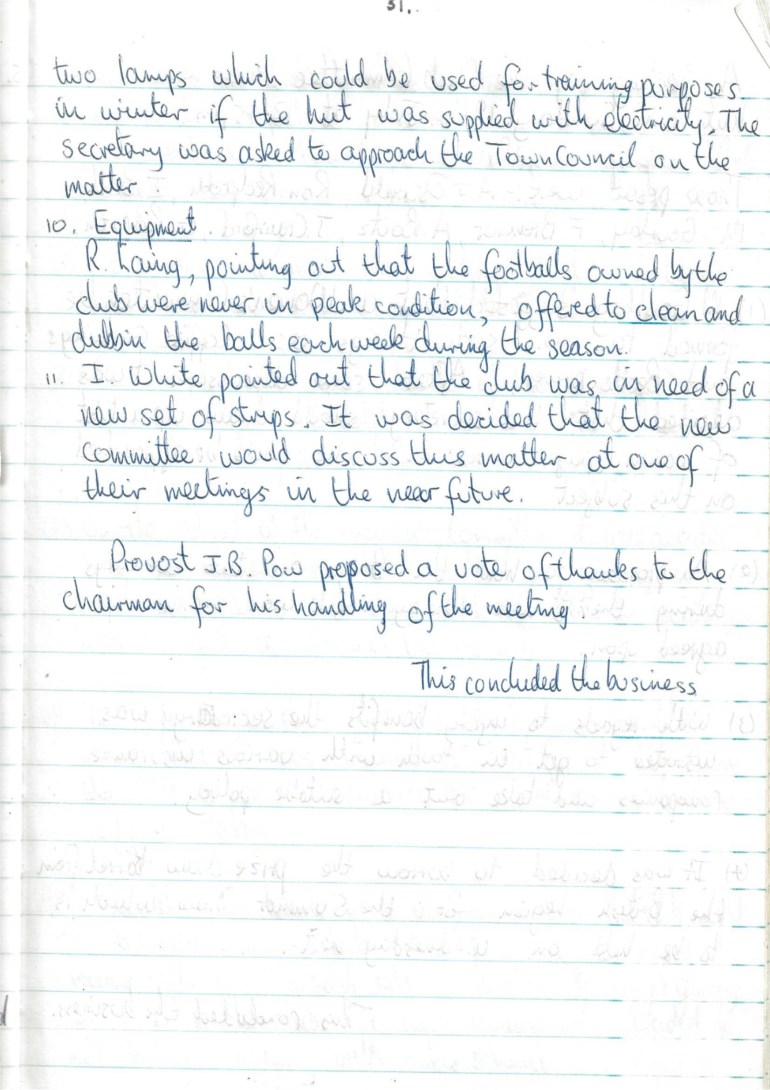 31.
two lamps which could be used for training purposes
in winter if the hut was supplied with electricity. The
secretary was asked to approach the Town Council on the
matter
10. Equipment
R. Laing, pointing out that the footballs owned by the
club were never in peak condition, offered to clean and
dubbin the balls each week during the season.
11. I. White pointed out that the club was in need of a
new set of strips. It was decided that the new
committee would discuss this matter at one of
their meetings in the near future.
Provost J.B. Pow proposed a vote of thanks to the
chairman for his handling of the meeting.
This concluded the business